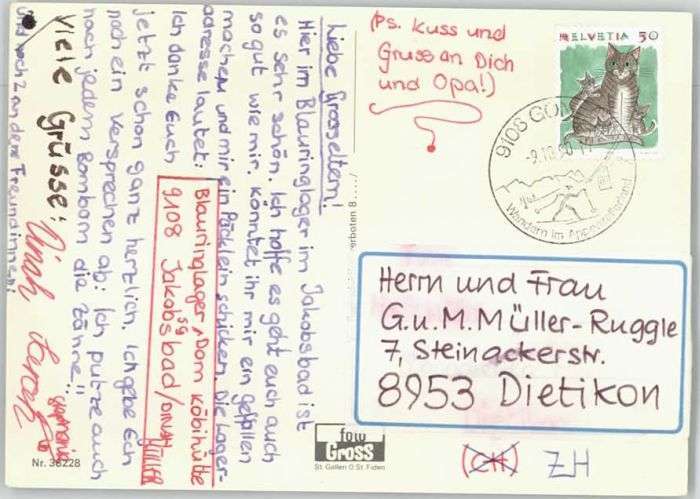 Liebe Grosseltern!
Hier im Blauringlager im Jakobsbad ist
es sehr schön. Ich hoffe es geht euch auch
so gut wie mir. Könntet ihr mir ein gefallen
machen und mir ein Päcklein schicken. Die Lager-
adresse lautet:
Blauringlager, Dom Köbihütte
9108 Jakobsbad/
SG
MÜLLER
Ich danke Euch
jetzt schon ganz herzlich. Ich gebe Euch
noch ein Versprechen ab: Ich putze auch
nach jedem Bombom die Zähne!!
Viele Grüsse:
und noch 2 andere Freundinnen:
(Ps. Kuss und
Gruss an Dich
und Opa!)
HELVETIA 50
9108 GO
-9.10.90
Wandern im Appenzellerland
Herrn und Frau
G.u.M.Müller-Ruggle
7, Steinackerstr.
8953 Dietikon
(CH) ZH
foto
Gross
St. Gallen O St. Fiden
Nr. 38228